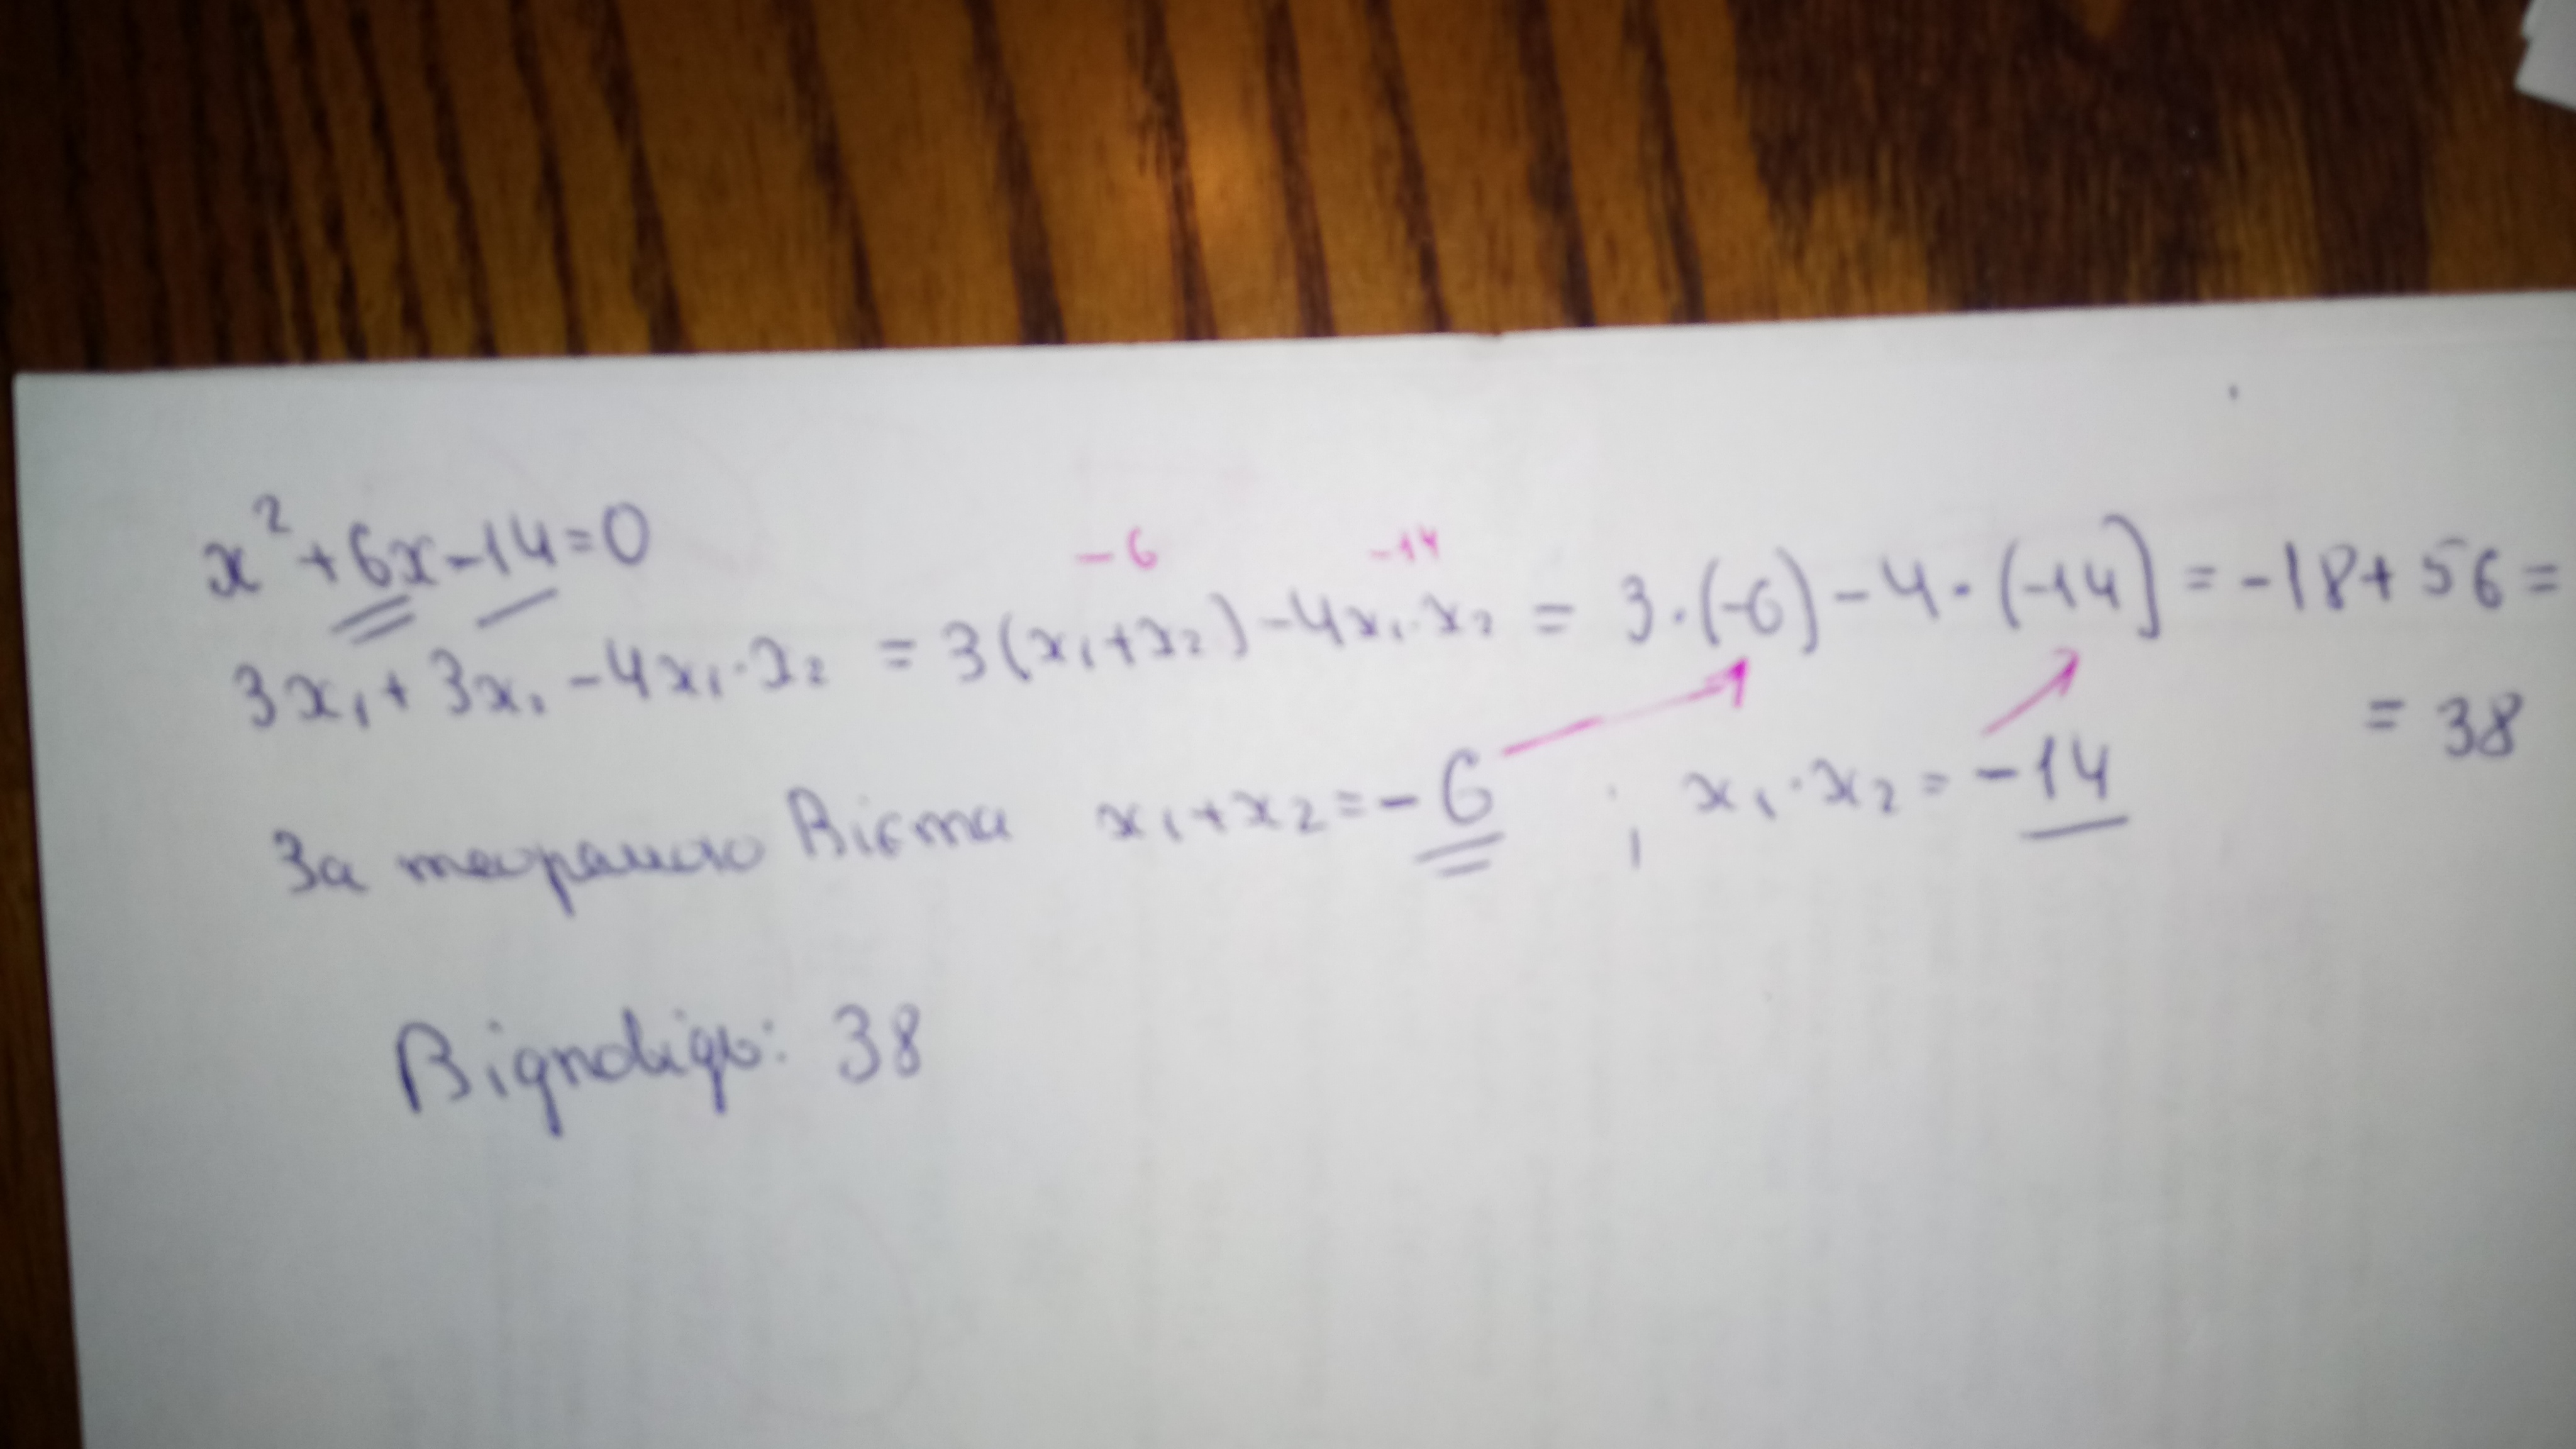 x² + 6x - 14 = 0
-6 -14
3x₁ + 3x₁ - 4x₁·x₂ = 3(x₁+x₂) - 4x₁·x₂ = 3·(-6) - 4·(-14) = -18 + 56 =
= 38
За теоремою Вієта x₁+x₂ = -6 ; x₁·x₂ = -14
Відповідь: 38